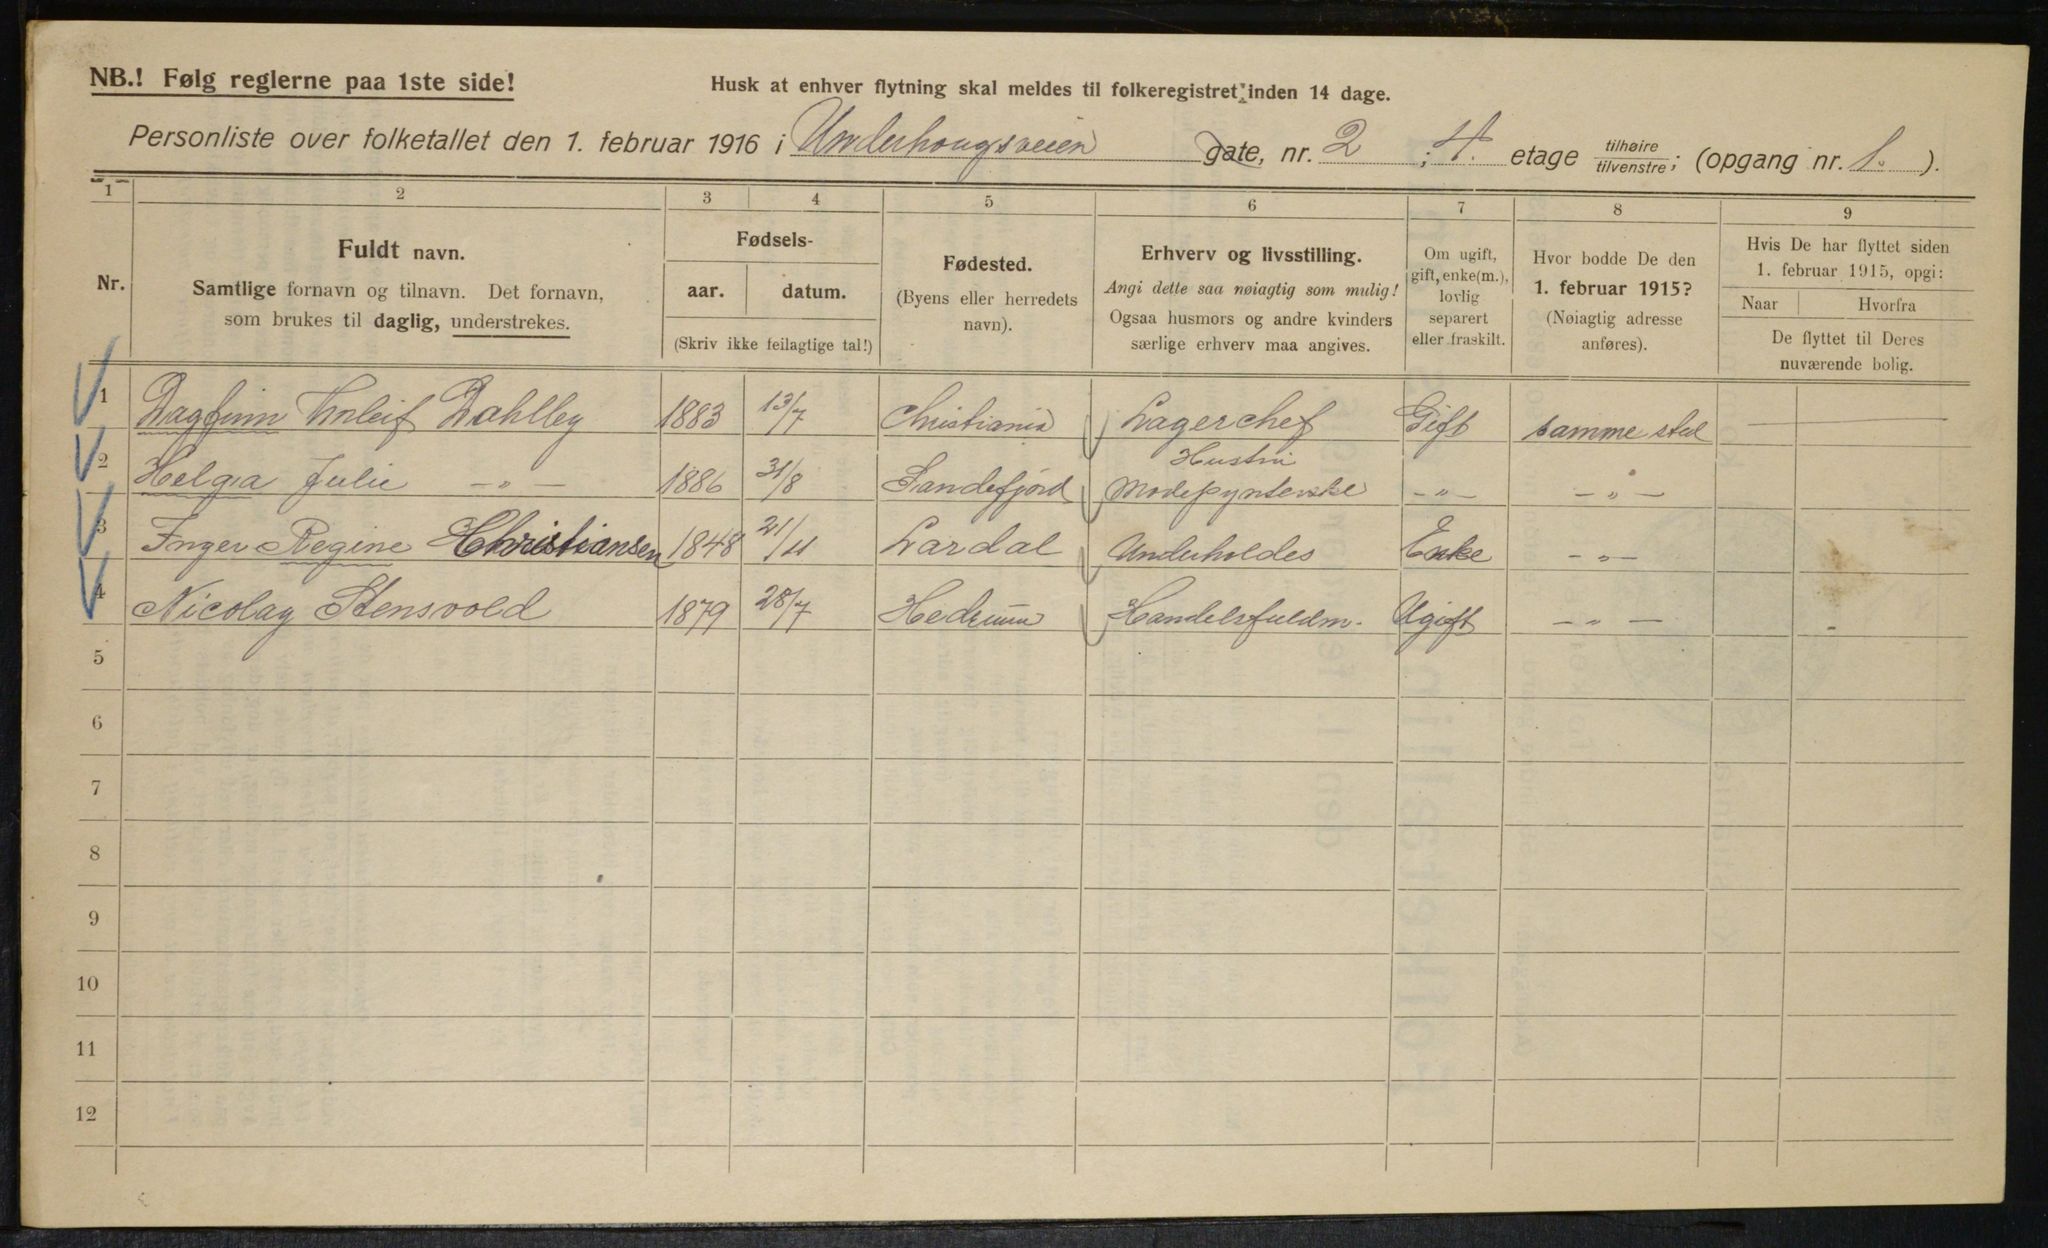 NB.! Følg reglerne paa 1ste side!
Husk at enhver flytning skal meldes til folkeregistret inden 14 dage.
Personliste over folketallet den 1. februar 1916 i Underhougsveien gate, nr. 2 ; 4. etage tilhøire tilvenstre; (opgang nr. 1. ).
1 2 3 4 5 6 7 8 9
Nr.
Fuldt navn.
Samtlige fornavn og tilnavn. Det fornavn,
som brukes til daglig, understrekes.
Fødsels-
aar. datum.
(Skriv ikke feilagtige tal!)
Fødested.
(Byens eller herredets
navn).
Erhverv og livsstilling.
Angi dette saa nøiagtig som mulig!
Ogsaa husmors og andre kvinders
særlige erhverv maa angives.
Om ugift,
gift, enke(m.),
lovlig
separert
eller fraskilt.
Hvor bodde De den
1. februar 1915?
(Nøiagtig adresse
anføres).
Hvis De har flyttet siden
1. februar 1915, opgi:
Naar Hvorfra
De flyttet til Deres
nuværende bolig.
1 Dagfinn Dahlby 1883 13/7 Christiania Lagerchef Gift samme sted —
2 Helga Julie —„— 1886 31/8 Sandefjord Hustru Modepynterske —„— —„—
3 Inger Regine Christiansen 1848 21/11 Lardal Underholdes Enke —„—
4 Nicolay Stensvold 1879 28/7 Hedrum Handelsfuldm. Ugift —„— -
5
6
7
8
9
10
11
12